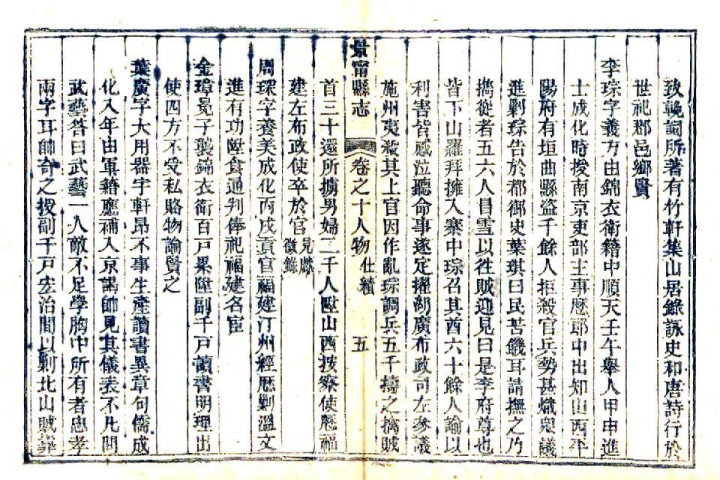 致輓詞所著有竹軒集山居錄詠史和唐詩行於
世祀郡邑鄉賢
李琮字義方由錦衣衛籍中順天壬午舉人甲申進
士成化時授南京吏部主事歷郎中出知山西平
陽府有垣曲縣盜千餘人拒殺官兵勢甚熾眾議
進剿琮告於都御史葉琪曰民苦饑耳請撫之乃
攜從者五六人冒雪以往賊迎見曰是李府尊也
皆下山羅拜擁入寨中琮召其酋六十餘人諭以
利害皆感泣聽命事遂定擢湖廣布政司左參議
施州夷殺其上官因作亂琮調兵五千擣之擒賊
景甯縣志 卷之十人物 仕績 五
首三十還所擄男婦二千人陞山西按察使歷福
建左布政使卒於官 見縣徵錄
周琛字養美成化丙戌貢官福建汀州經歷剿溫文
進有功陞食通判俸祀福建名臣
金璋冕子襲錦衣衛百戶累陞副千戶讀書明理出
使四方不受私賂物論賢之
葉廣字大用器宇軒昂不事生產讀書異章句儒成
化八年由軍籍應補入京謁帥見其儀表不凡問
武藝答曰武藝一人敵不足學胸中所有者忠孝
兩字耳帥奇之授副千戶宏治間以剿北山賊